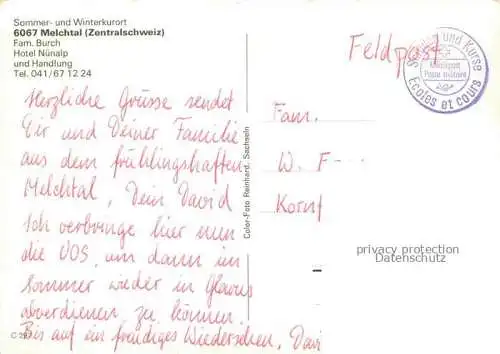 Sommer- und Winterkurort
6067 Melchtal (Zentralschweiz)
Fam. Burch
Hotel Nünalp
und Handlung
Tel. 041/67 12 24
Feldpost
Schulen und Kurse
Feldpost
Poste militaire
Ecoles et cours
Herzliche Grüsse sendet
Dir und Deiner Familie
aus dem frühlingshaften
Melchtal, Dein David
Ich verbringe hier nun
die UOS, um dann im
Sommer wieder in Glarus
abverdienen zu können.
Bis auf ein freudiges Wiedersehen, Davi
Color-Foto Reinhard, Sachseln
Fam.
W. F---
Kornf
privacy protection
Datenschutz